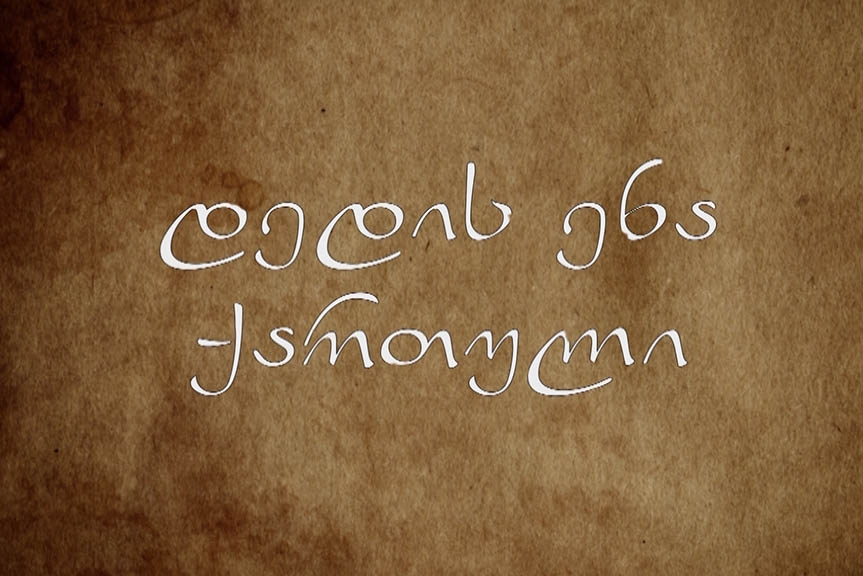 დედის ენა
ქართული